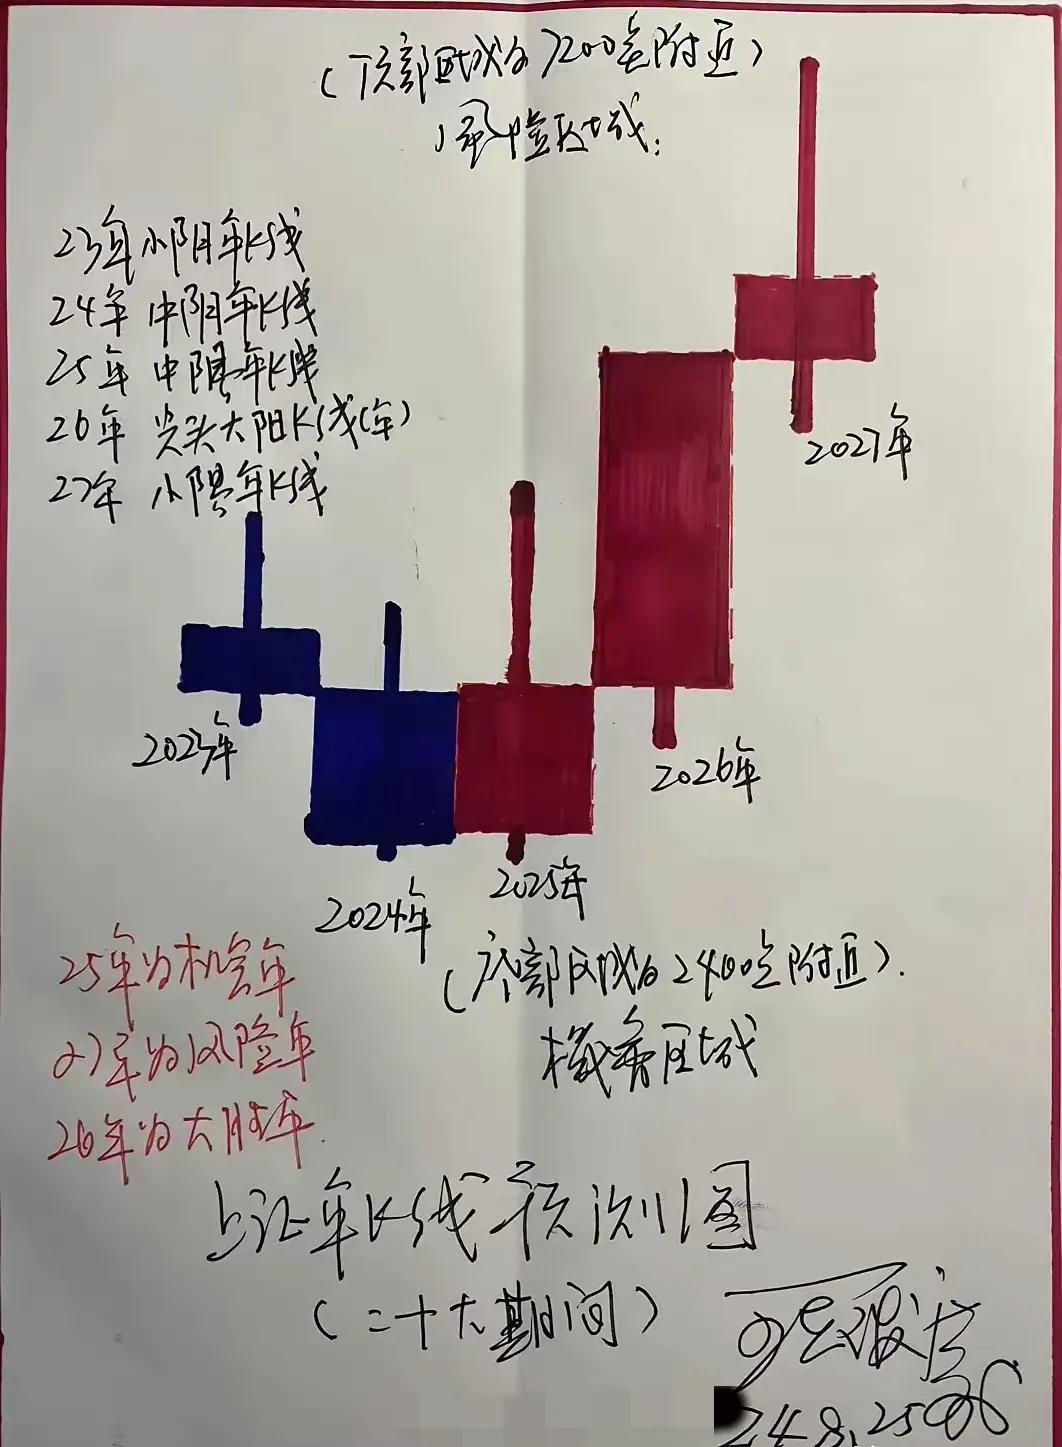 (顶部区域为7200点附近)
风险区域:
23年小阴年K线
24年 中阴年K线
25年 中陽年K线
26年 光头大阳K线(年)
27年 小陽年K线
2027年
2023年
2026年
2024年
2025年
(底部区域为2400点附近).
機會区域
25年为机会年
27年为风险年
26年为大胜年.
上证年K线预测图
(二十大期间)
24.8.25